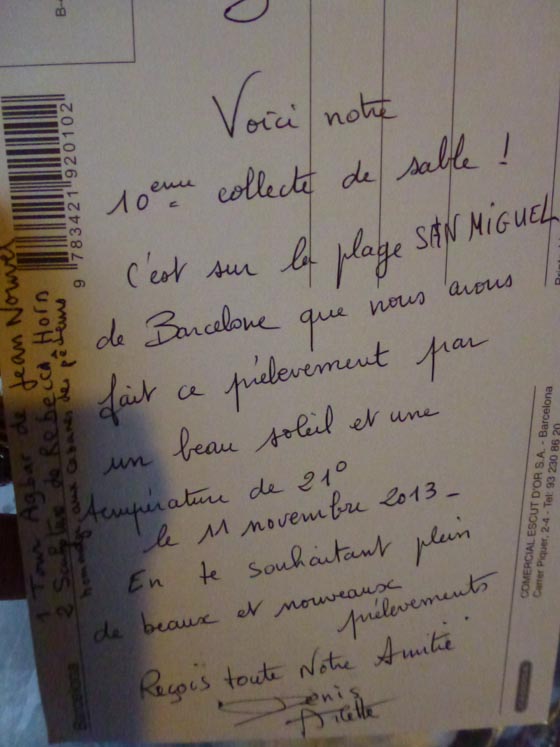 Voici notre
10eme collecte de sable !
C'est sur la plage SAN MIGUEL
de Barcelone que nous avons
fait ce prélevement par
un beau soleil et une
température de 21°
le 11 novembre 2013 -
En te souhaitant plein
de beaux et nouveaux
prélevements
Reçois toute Notre Amitié.
Denis
Arlette
9 783421 920102
1 Tour Agbar de Jean Nouvel
2 Sculpture de Rebecca Horn
hommage aux cabanes des pêcheurs
Barcelona
COMERCIAL ESCUT D'OR S.A. - Barcelona
Carrer Piquer, 2-4 - Tel. 93 230 86 20